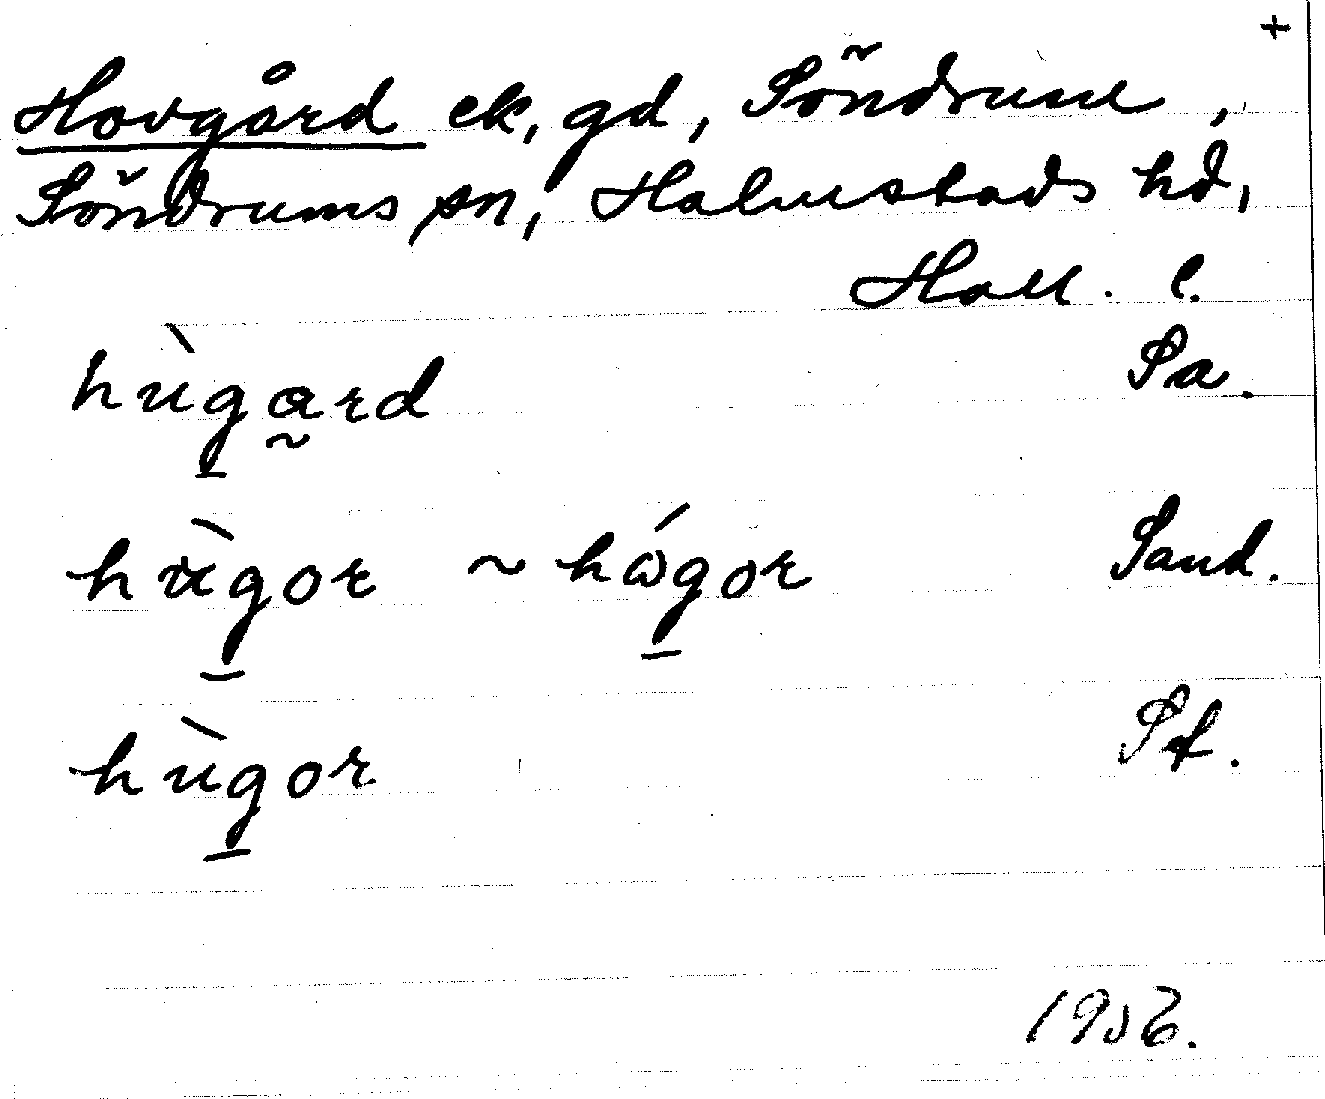 +
Hovgård ek, gd, Söndrum,
Söndrums sn, Halmstads hd,
Hall. l.
hùgard Sa.
hùgor ~ hógor Sand.
hùgor St.
1956.